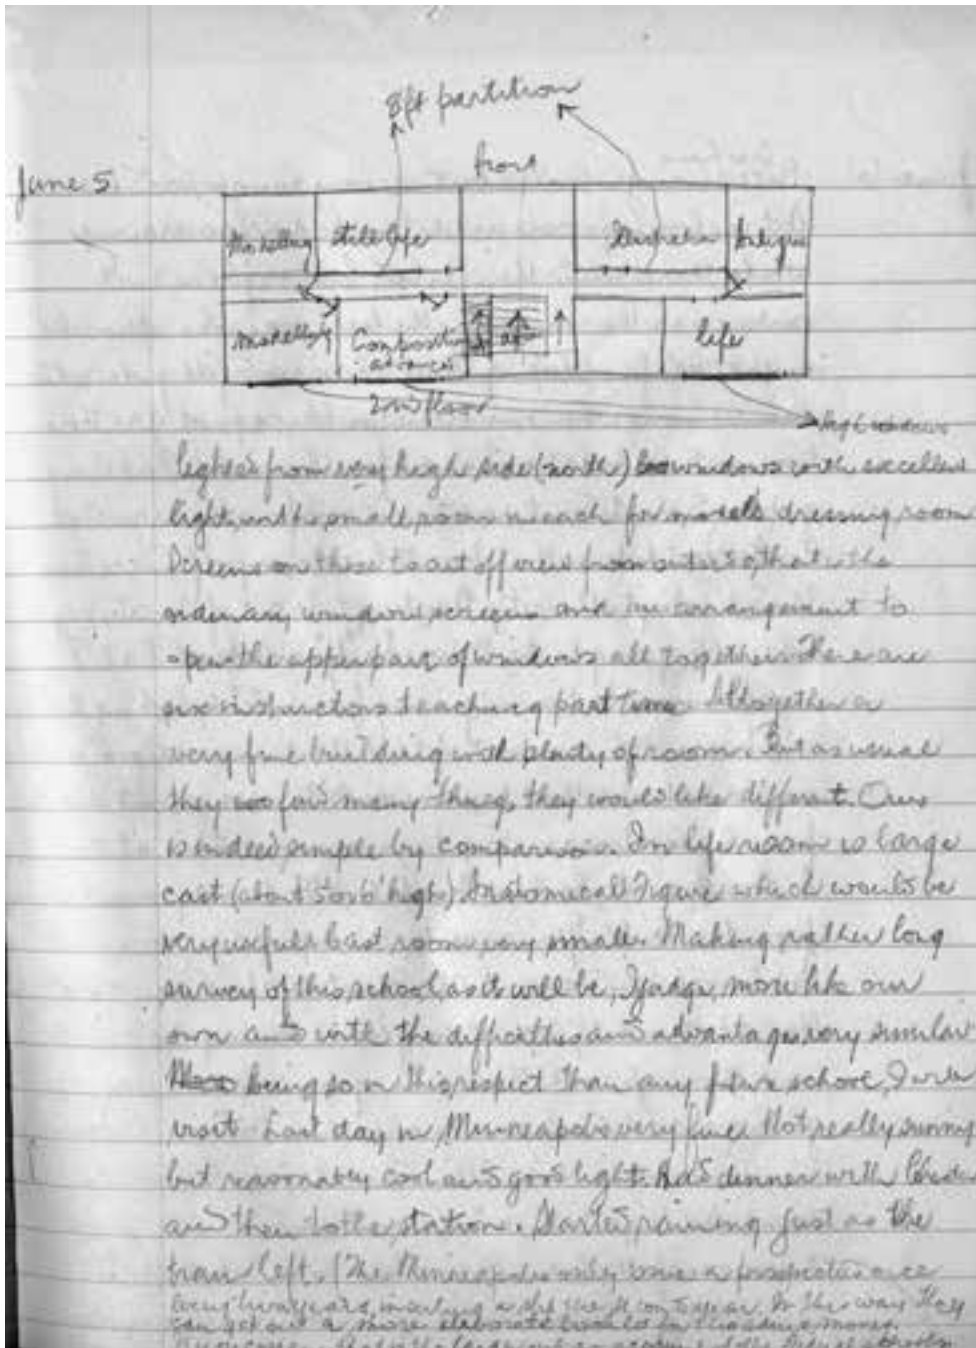 8ft partition
front
June 5
Modelling still life Illustration Antique
Modelling Composition life
advanced
2nd floor
High windows
lighted from very high side (north) windows with excellent
light, with small room in each for model's dressing room
Screens on these to cut off view from outside, that is the
ordinary window screens and an arrangement to
open the upper part of windows all together. There are
six instructors teaching part time. Altogether a
very fine building with plenty of room. But as usual
they find many things they would like different. Ours
is indeed simple by comparison. In life room is large
cast (about 5 or 6' high) Anatomical Figure which would be
very useful. Cast room very small. Making rather long
survey of this school, as it will be, I judge, more like our
own and with the difficulties and advantages very similar
being so in this respect than any future school, I will
visit. Last day in Minneapolis very fine. Not really sunny
but reasonably cool and good light. Had dinner with
and then to the station. Started raining just as the
train left. (The Minneapolis only issue a prospectus once
every two years, inserting a In this way they
can get out a more elaborate